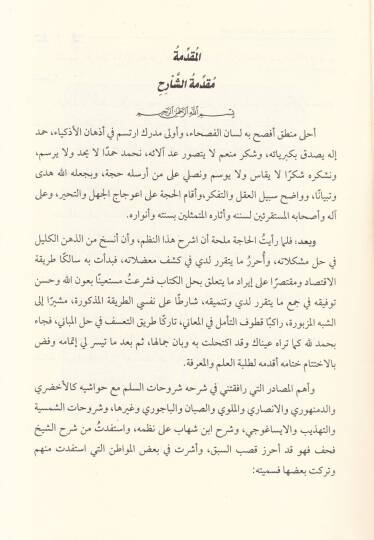 المُقدِّمةُ
مُقدِّمةُ الشَّارِحِ
بِسْمِ اللَّهِ الرَّحْمَنِ الرَّحِيمِ
أحلى منطق أفصح به لسان الفصحاء، وأولى مدرك ارتسم في أذهان الأذكياء، حمد
إله يصدق بكبريائه، وشكر منعم لا يتصور عد آلائه، نحمد حمدًا لا يحد ولا يرسم،
ونشكره شكرًا لا يقاس ولا يوسم ونصلي على من أرسله حجة، وبجعله الله هدى
وتبيانًا، وواضح سبيل العقل والتفكر، وأقام الحجة على اعوجاج الجهل والتحير، وعلى
آله وأصحابه المستقرئين لسنته وآثاره المتمثلين بسنته وأنواره.
وبعد: فلما رأيتُ الحاجة ملحة أن اشرح هذا النظم، وأن أنسخ من الذهن الكليل
في حل مشكلاته، وأُحررُ ما يتقرر لدي في كشف معضلاته، فبدأت به سالكًا طريقة
الاقتصاد ومقتصرًا على إيراد ما يتعلق بحل الكتاب فشرعتُ مستعينًا بعون الله وحسن
توفيقه في جمع ما يتقرر لدي وتنميقه، شارطًا على نفسي الطريقة المذكورة، مشيرًا إلى
الشبه المزبورة، راكبًا قطوف التأمل في المعاني، تاركًا طريق التعسف في حل المباني، فجاء
بحمد لله كما تراه عيناك وقد اكتحلت به وبان جمالها، ثم بعد ما تيسر لي إتمامه وفض
بالاختتام ختامه أقدمه لطلبة العلم والمعرفة.
وأهم المصادر التي رافقتني في شرحه شروحات السلم مع حواشيه كالأخضري
والدمنهوري والانصاري والملوي والصبان والباجوري وغيرها، وشروحات الشمسية
والتهذيب والايساغوجي، وشرح ابن شهاب على نظمه، واستفدتُ من شرح الشيخ
فحف فهو قد أحرز قصب السبق، وأشرت في بعض المواطن التي استفدت منهم
وتركت بعضها فسميته: